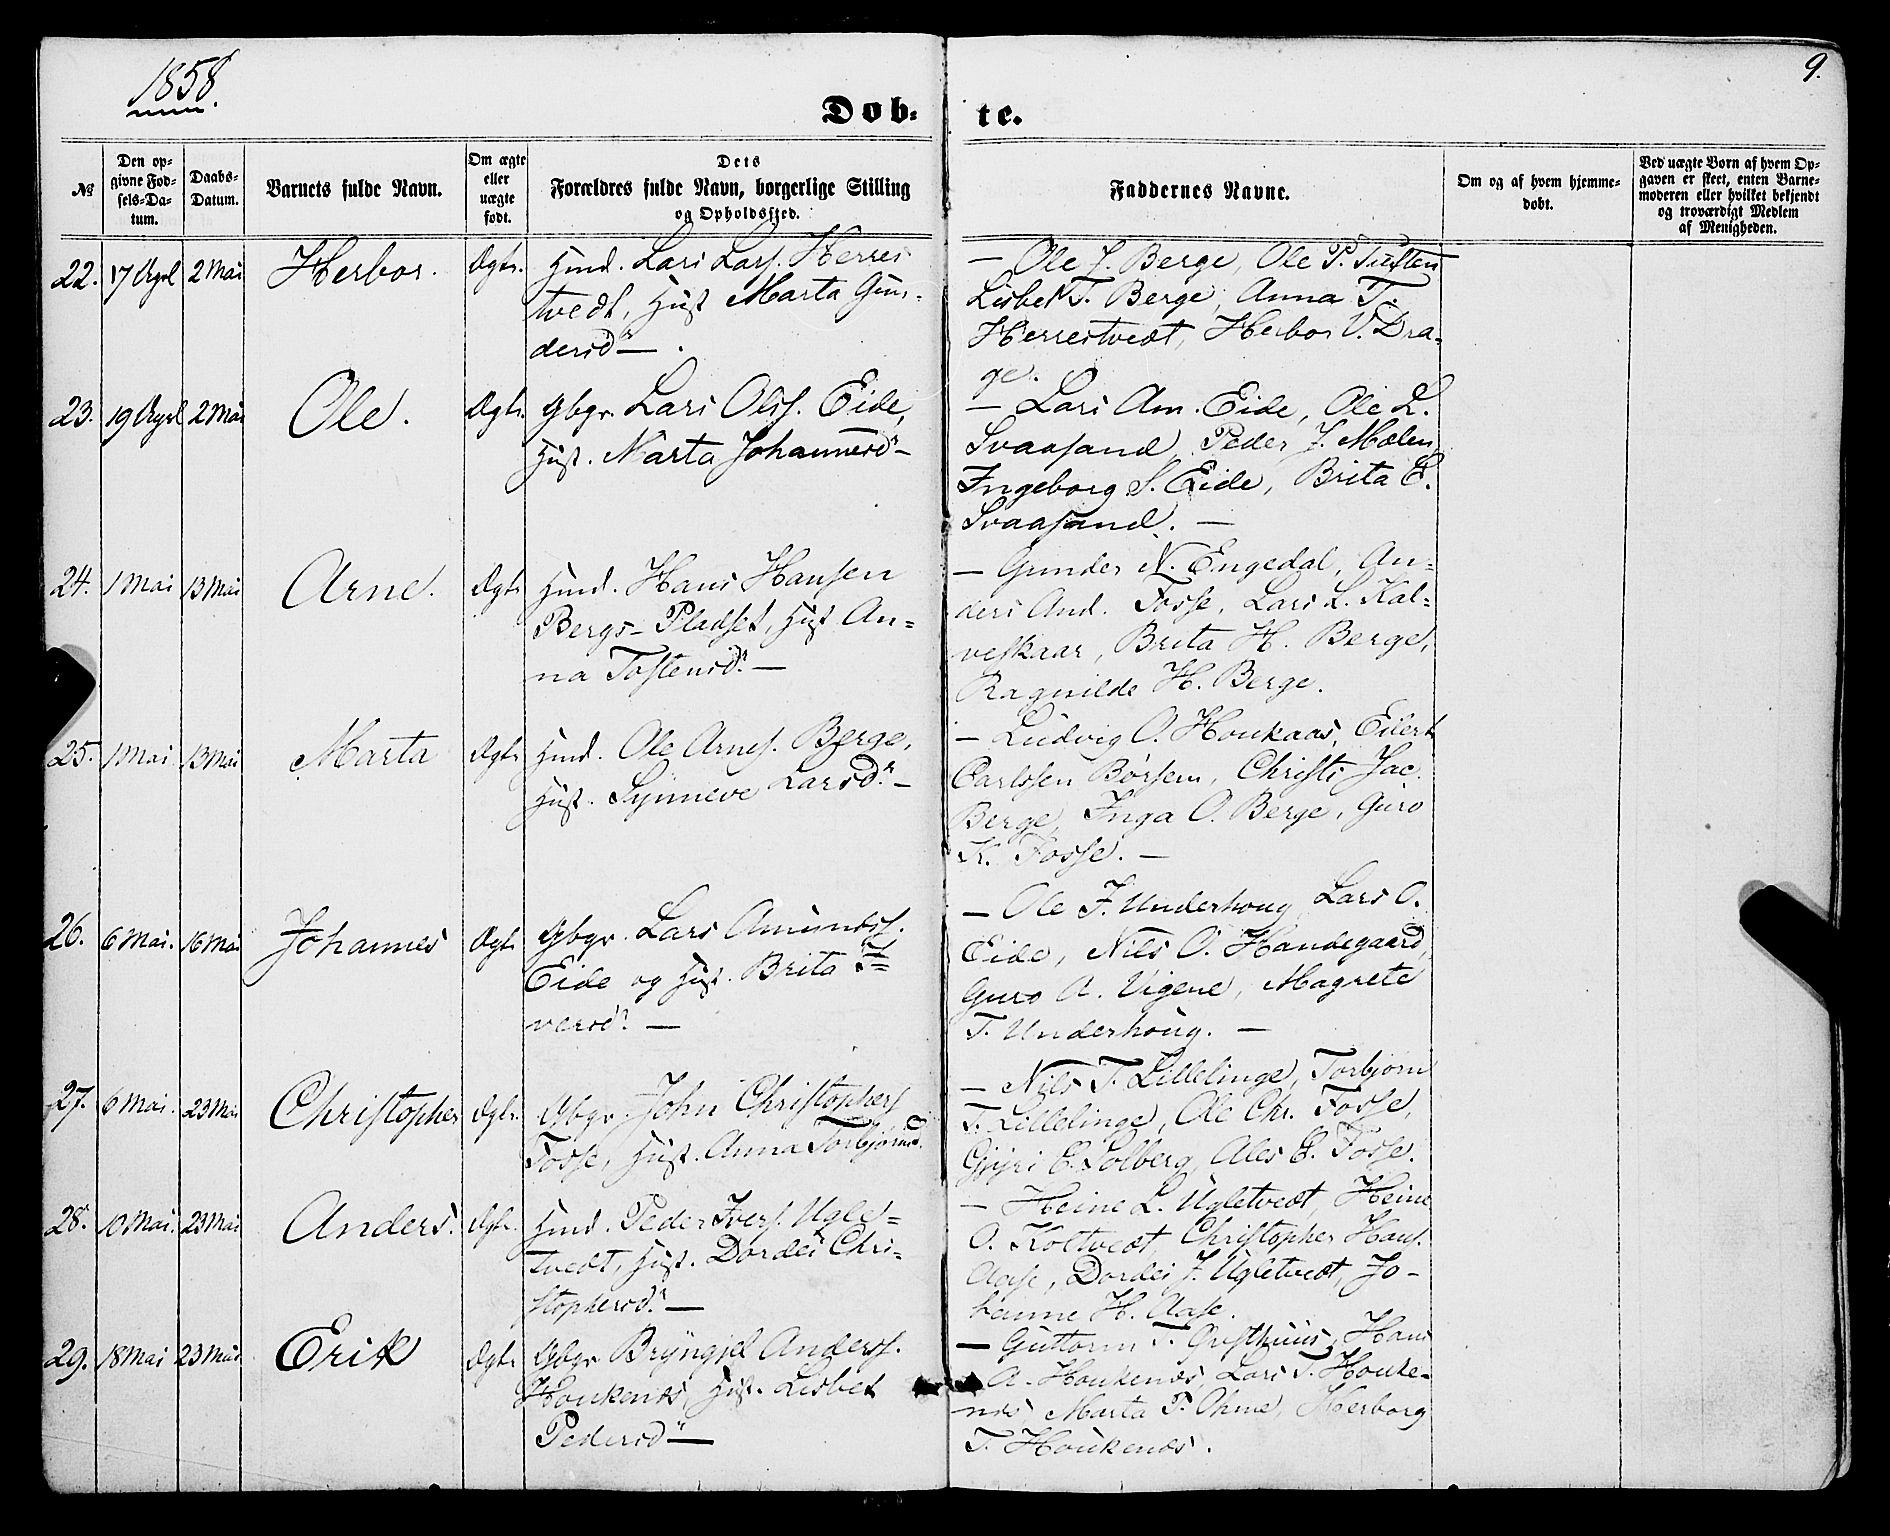 1858.
9.
Døb-
te.
№
Den opgivne Fødsels-Datum.
Daabs-Datum.
Barnets fulde Navn.
Om ægte eller uægte født.
Dets Forældres fulde Navn, borgerlige Stilling og Opholdssted.
Faddernes Navne.
Om og af hvem hjemmedøbt.
Ved uægte Børn af hvem Opgaven er skeet, enten Barnemoderen eller hvilket bekjendt og troværdigt Medlem af Menigheden.
22. 17 Apl 2 Mai Herbor. Ægte. Hmd. Lars Lars. Herres
tvedt, Hust Marta Gun-
dersdr — .
— Ole J. Berge, Ole P. Tuften
Lisbet T. Berge, Anna T.
Herrestvedt, Herbor V. Dra-
ge.
23. 19 Apl 2 Mai Ole. Ægte. Gbgr. Lars Ols. Eide,
Hust. Marta Johannesdr —
— Lars Am. Eide, Ole L.
Svaasand, Peder J. Mælen
Ingeborg S. Eide, Brita E.
Svaasand. —
24. 1 Mai 13 Mai Arne. Ægte Hmd. Hans Hansen
Bergs-Pladset, Hust An-
na Tostensdr. —
— Gunder N. Engedal, An-
ders And. Fosse, Lars L. Kal-
veskaar, Brita H. Berge,
Ragnilde H. Berge.
25. 1 Mai 13 Mai Marta Ægte Hmd. Ole Arnes. Berge,
Hust. Synneve Larsdr. —
— Ludvig O. Houkaas, Eilert
Carlssen Børsem, Christi Jac.
Berge, Inga O. Berge, Guro
K. Fosse. —
26. 6 Mai. 16 Mai Johannes Ægte Gbgr. Lars Amunds.
Eide og Hust. Brita I-
versdr. —
— Ole J. Underhoug, Lars O.
Eide, Nils O. Handegaard,
Guro A. Vigene, Magrete
T. Underhoug. —
27. 6 Mai. 23 Mai Christopher Ægte. Gbgr. John Christophers
Fosse, Hust. Anna Torbjørnsd.
— Nils T. Lillelinge, Torbjørn
T. Lillelinge, Ole Chr. Fosse,
Gjyri E. Solberg, Ales E. Fosse.
28. 10 Mai. 23 Mai Anders. Ægte. Hmd. Peder Ivers. Ugle-
tvedt, Hust. Dordei Chri-
stophersdr. —
— Heine L. Ugletvedt, Heine
O. Koltvedt, Christopher Hans.
Aase, Dordei J. Ugletvedt, Jo-
hanne H. Aase.
29. 18 Mai 23 Mai Erik Ægte Gbgr Bryngjel Anders.
Houkenæs, Hust. Lisbet
Pedersdr —
— Guttorm T. Hans
A. Houkenæs, Lars T. Houke-
næs, Marta P. Ohme, Herborg
T. Houkenæs.